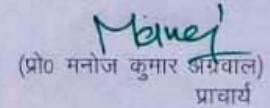 Manoj
(प्रो० मनोज कुमार अग्रवाल)
प्राचार्य